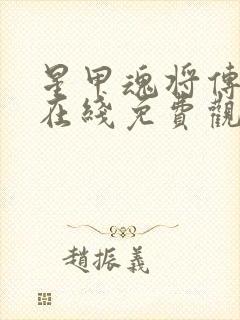 星甲魂将傳
在綫免費觀
趙振義